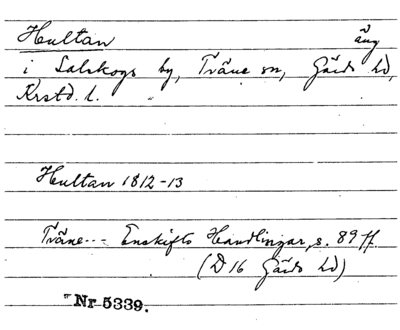 Hultan äng
i Salskogs by, Träne sn, Gärds hd,
Krstd. l.
Hultan 1812-13
Träne -- Enskifts Handlingar, s. 89 ff
(D 16 Gärds hd)
Nr 5339.